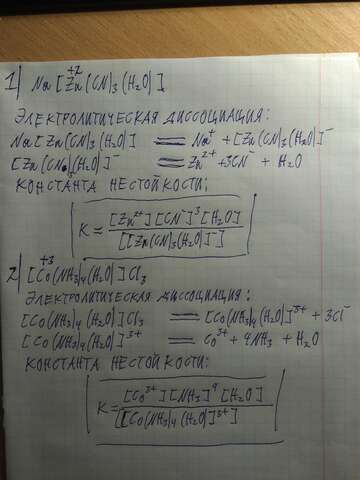 1) Na[Zn⁺²(CN)₃(H₂O)]
ЭЛЕКТРОЛИТИЧЕСКАЯ ДИССОЦИАЦИЯ:
Na[Zn(CN)₃(H₂O)] ⇌ Na⁺ + [Zn(CN)₃(H₂O)]⁻
[Zn(CN)₃(H₂O)]⁻ ⇌ Zn²⁺ + 3CN⁻ + H₂O
КОНСТАНТА НЕСТОЙКОСТИ:
K = [Zn²⁺][CN⁻]³[H₂O] / [[Zn(CN)₃(H₂O)]⁻]
2) [Co⁺³(NH₃)₄(H₂O)]Cl₃
ЭЛЕКТРОЛИТИЧЕСКАЯ ДИССОЦИАЦИЯ:
[Co(NH₃)₄(H₂O)]Cl₃ = [Co(NH₃)₄(H₂O)]³⁺ + 3Cl⁻
[Co(NH₃)₄(H₂O)]³⁺ ⇌ Co³⁺ + 4NH₃ + H₂O
КОНСТАНТА НЕСТОЙКОСТИ:
K = [Co³⁺][NH₃]⁴[H₂O] / [[Co(NH₃)₄(H₂O)]³⁺]